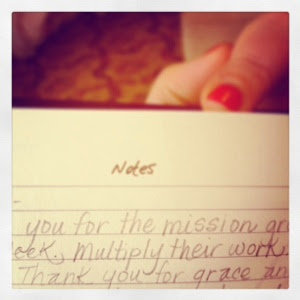 Notes
you for the mission
Multiply their work
Thank you for grace an